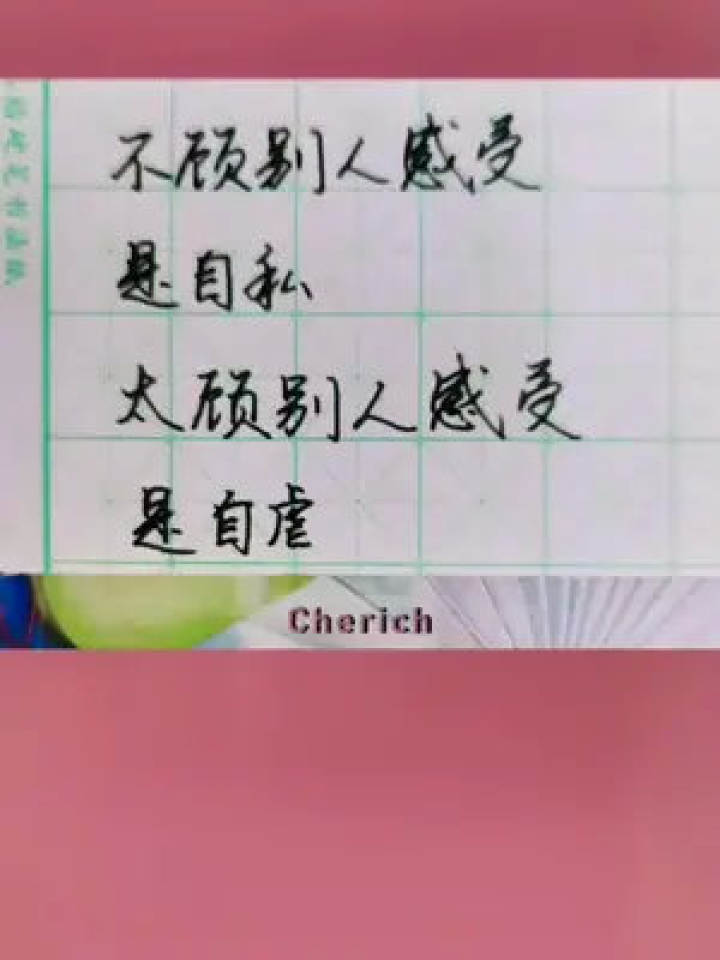 不顾别人感受
是自私
太顾别人感受
是自虐
Cherich